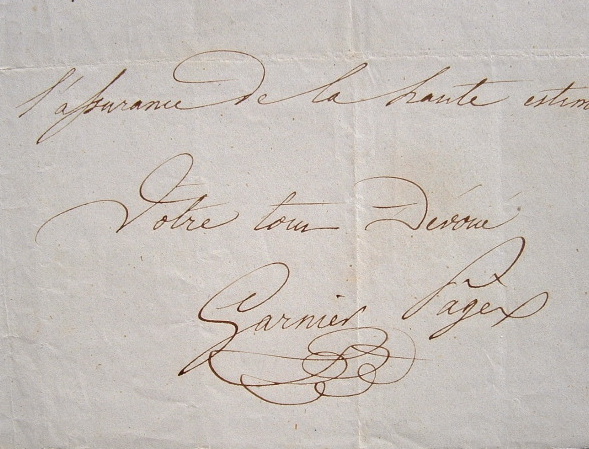 l'assurance de la haute estim
Votre tout Dévoué
Garnier Pagès